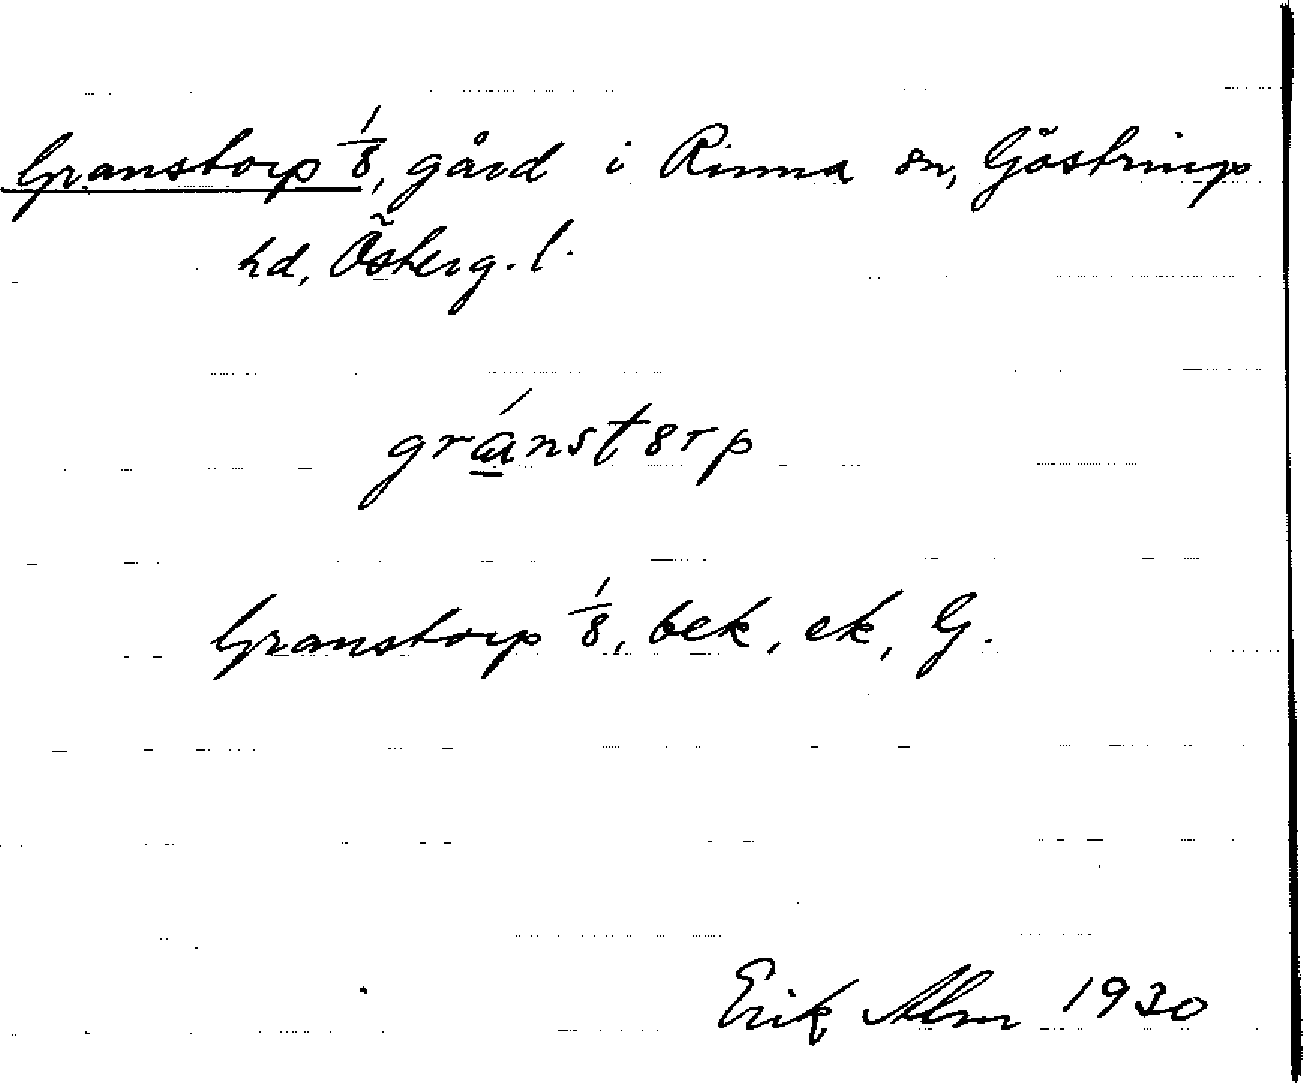 Granstorp 1/8, gård i Rinna sn, Göstrings
hd, Österg. l.
gránst8rp
Granstorp 1/8, bek, ek, G.
Erik Alm 1930